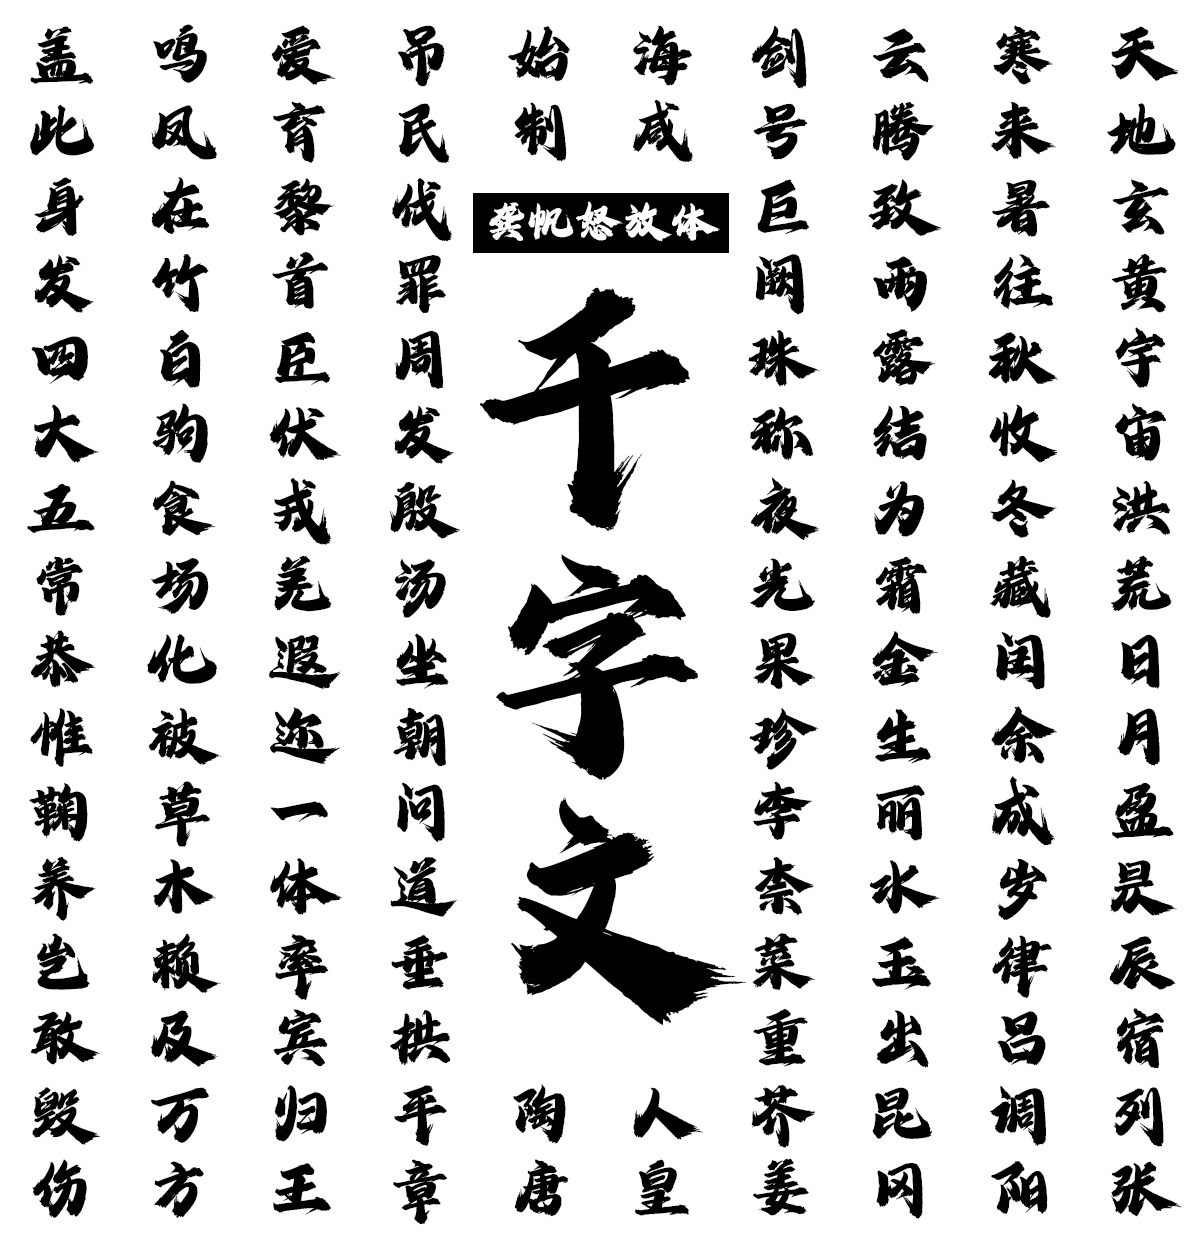 龚帆怒放体
千字文
天地玄黄宇宙洪荒日月盈昃辰宿列张
寒来暑往秋收冬藏闰余成岁律吕调阳
云腾致雨露结为霜金生丽水玉出昆冈
剑号巨阙珠称夜光果珍李柰菜重芥姜
海咸
人皇
始制
陶唐
吊民伐罪周发殷汤坐朝问道垂拱平章
爱育黎首臣伏戎羌遐迩一体率宾归王
鸣凤在竹白驹食场化被草木赖及万方
盖此身发四大五常恭惟鞠养岂敢毁伤